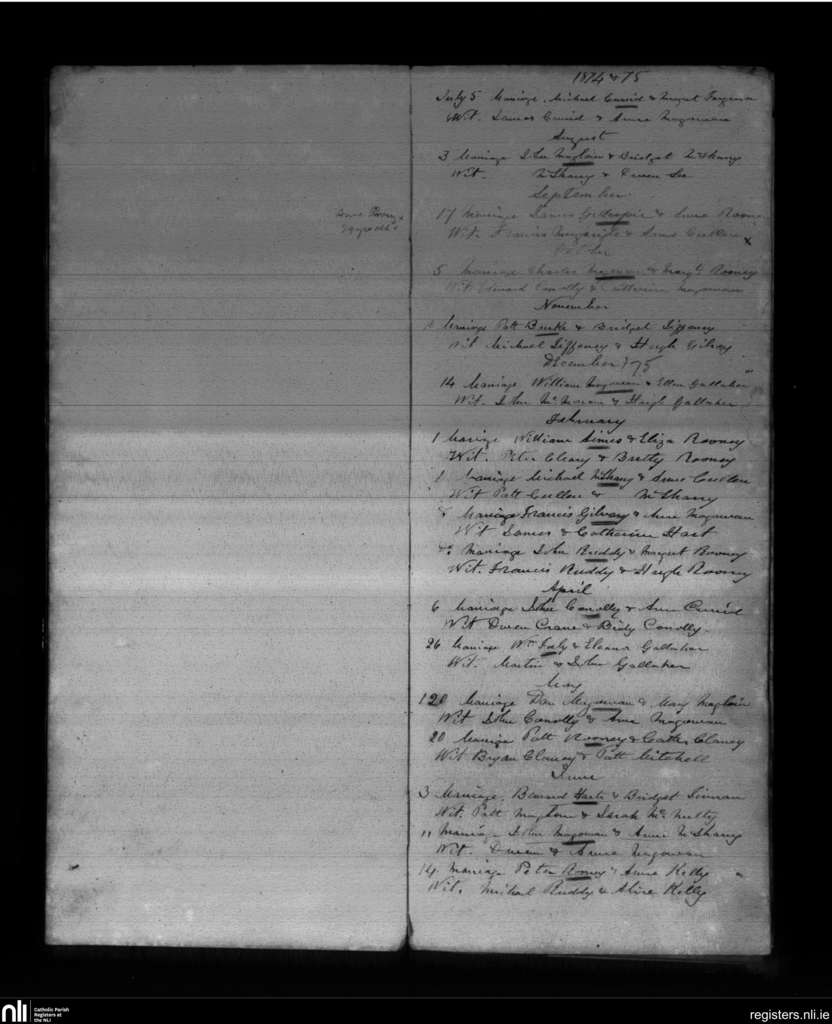 1874 & 75
July 5 Marriage Michael Currid & Margret Ferguson
Wit. James Currid & Anne Magowan
August
3 Marriage John Magloin & Bridget McSharry
Wit. McSharry & Owen
September
17 Marriage James Gillespie & Anne Rooney
Wit. Francis & Anne Cullen x
Anne Rooney
5 Marriage Charles Magowan & Margt Rooney
Wit Edward Conolly & Catherine Magowan
November
Marriage Patt Burke & Bridget Giffeney
Wit Michael Giffeney & Hugh Gilroy
December /75
14 Marriage William Magowan & Ellen Gallaher
Wit. John & Hugh Gallaher
February
1 Marriage William Simes & Eliza Rooney
Wit. Peter Cleary & Bretty Rooney
1 Marriage Michael McSharry & Anne Cullen
Wit Patt Cullen & McSharry
8 Marriage Francis Gilvary & Anne Magowan
Wit James & Catherine Hart
Marriage John Ruddy & Margret Rooney
Wit. Francis Ruddy & Hugh Rooney
April
6 Marriage John Conolly & Ann Currid
Wit Owen Crane & Bidy Conolly
26 Marriage Wm & Eleanr Gallaher
Wit. Martin & John Gallaher
May
120 Marriage Dan Magowan & Mary Magloin
Wit John Conolly & Anne Magowan
20 Marriage Patt Rooney & Cathe. Clancy
Wit Bryan Clancy & Patt Mitchell
June
3 Marriage. Bernard Harte & Bridget
Wit. Patt & Sarah McNulty
11 Marriage John Magowan & Anne McSharry
Wit. Owen & Anne Magowan
14 Marriage Peter Rooney & Anne Kelly
Wit. Michael Ruddy & Alice Kelly
nli
Catholic Parish
Registers at
the NLI
registers.nli.ie